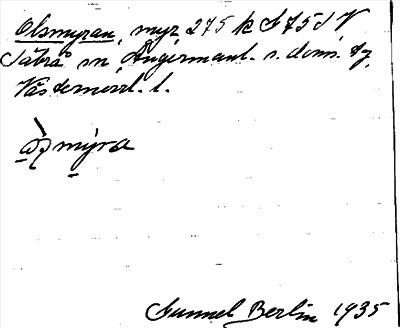 Olsmyran, myr 275 k S 75 d V
Sätra sn, Ångermanl. s. doms. bg,
Västernorrl. l.
myra
Gunnel Berlin 1935